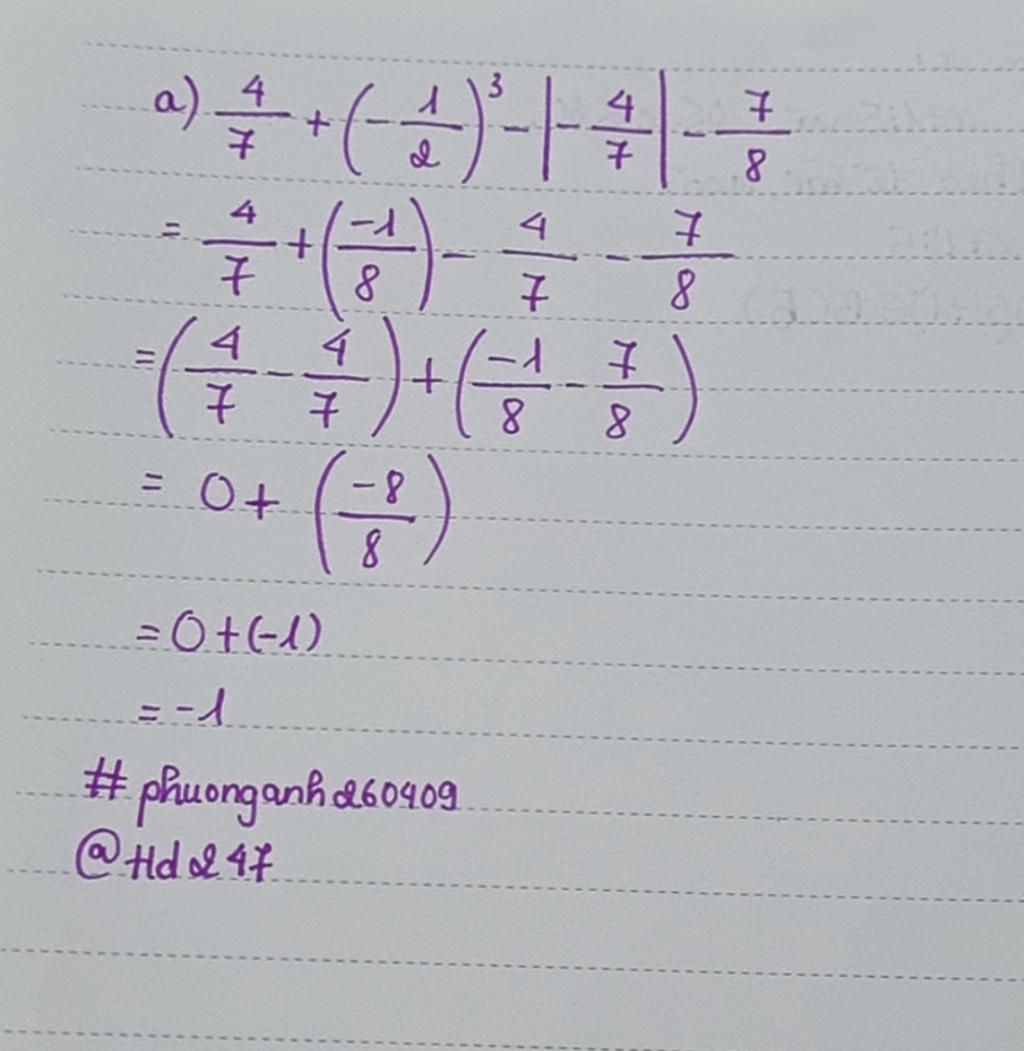 a) 4/7 + (-1/2)³ - |-4/7| - 7/8
= 4/7 + (-1/8) - 4/7 - 7/8
= (4/7 - 4/7) + (-1/8 - 7/8)
= 0 + (-8/8)
= 0 + (-1)
= -1
# phuonganh260409
@Hd247